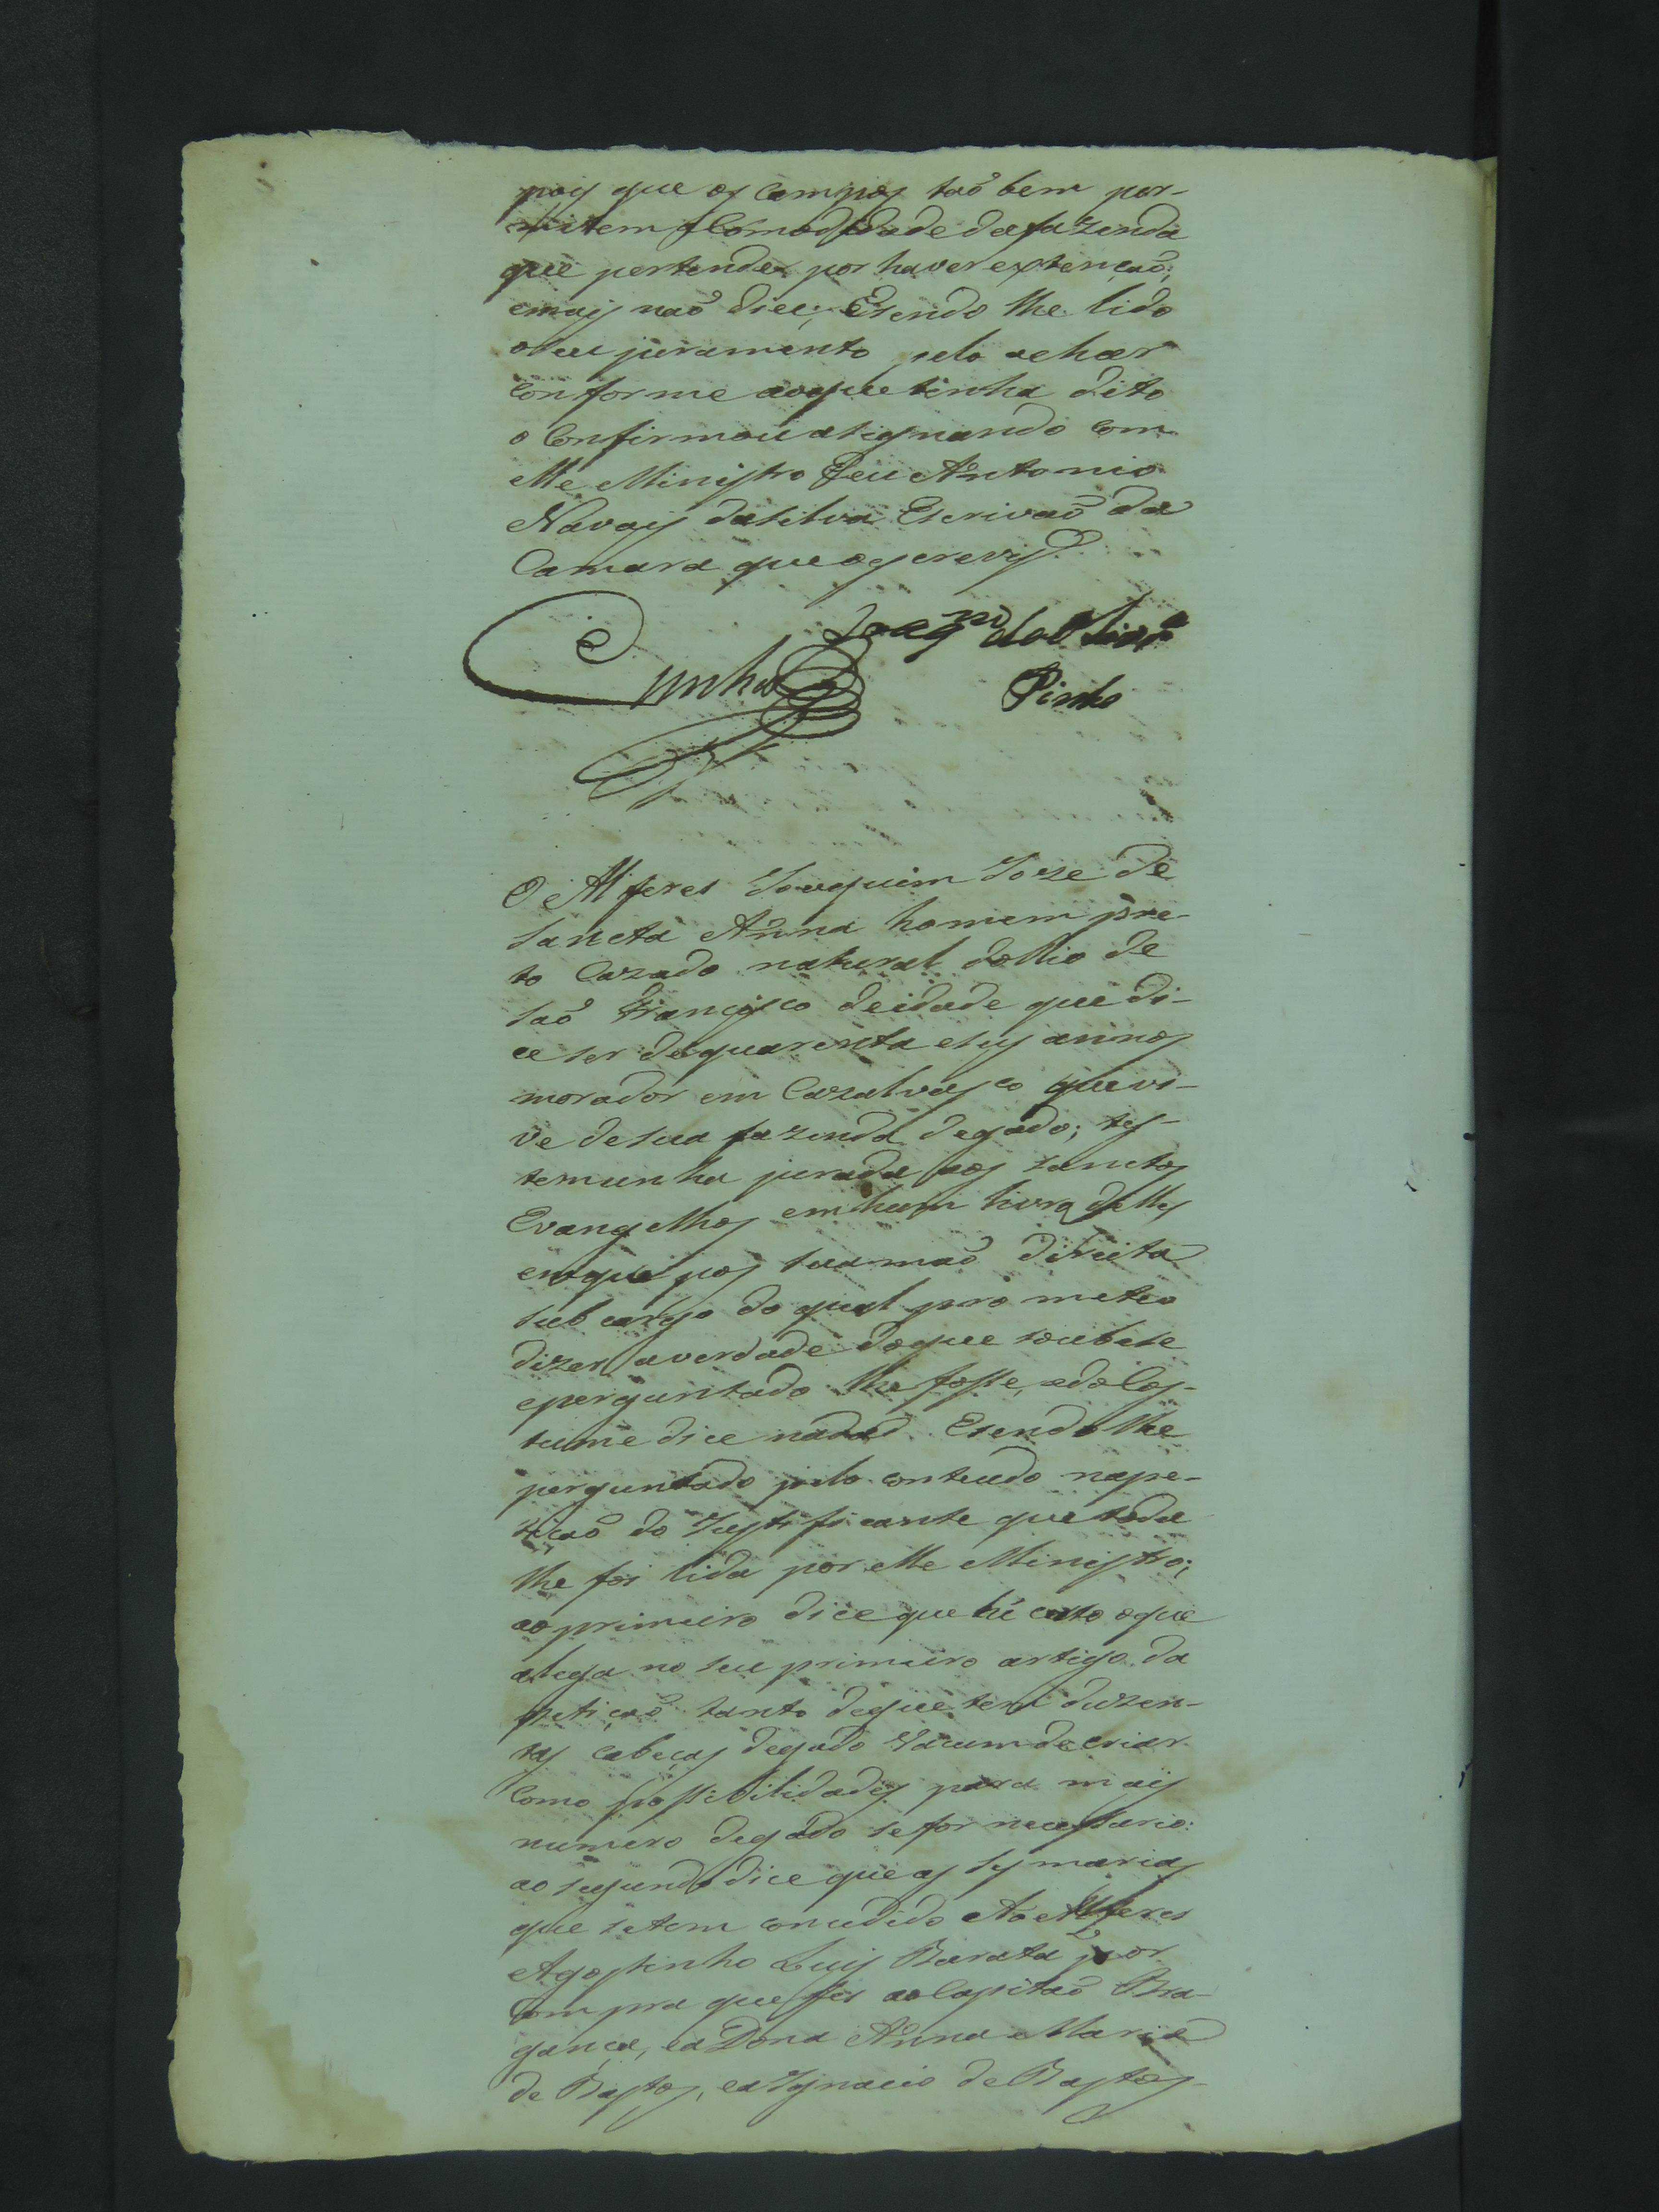 pois que os campos taõ bem per-
mitem Comodidade da fazenda
que pertender por haver extençaõ;
emais naõ dice; Esendo lhe lido
oseu juramento pelo achar
conforme aoque tinha dito
o Confirmou asignando com
elle Ministro Eeu Antonio
Navais dasilva Escrivaõ da
Camara que oescrevy.
Cunha Joaqm da Silva
Pinho
O Alferes Joaquim Joze de
Sancta Anna homem pre-
to Cazado natural doRio de
Saõ Francisco deidade que di-
ce ser dequarenta eseis annos
morador em Cazalvasco que vi-
ve desua fazenda degado; tes-
temunha jurada aos sanctos
Evangelhos emhum livro delles
emque pos suamaõ direita
sub cargo do qual prometeo
dizer averdade doque soubese
eperguntado lhe fosse, edoCos-
tume dice nada. Esendo lhe
perguntado pelo conteudo nape-
tiçaõ do Justificante quetoda
lhe foi lida por elle Ministro;
ao primeiro dice que hé certo oque
alega no seu primeiro artigo da
petiçaõ tanto deque tem duzen-
tas cabeças degado vacum decriar
Como possibilidades para mais
numero degado sefor necessario:
ao segundo dice que as sesmarias
que setem concedido Ao Alferes
Agostinho Luis Barata por
compra que fes aoCapitaõ Bra-
gança, ea Dona Anna Maria
de Bastos, ea Ignacio de Bastos